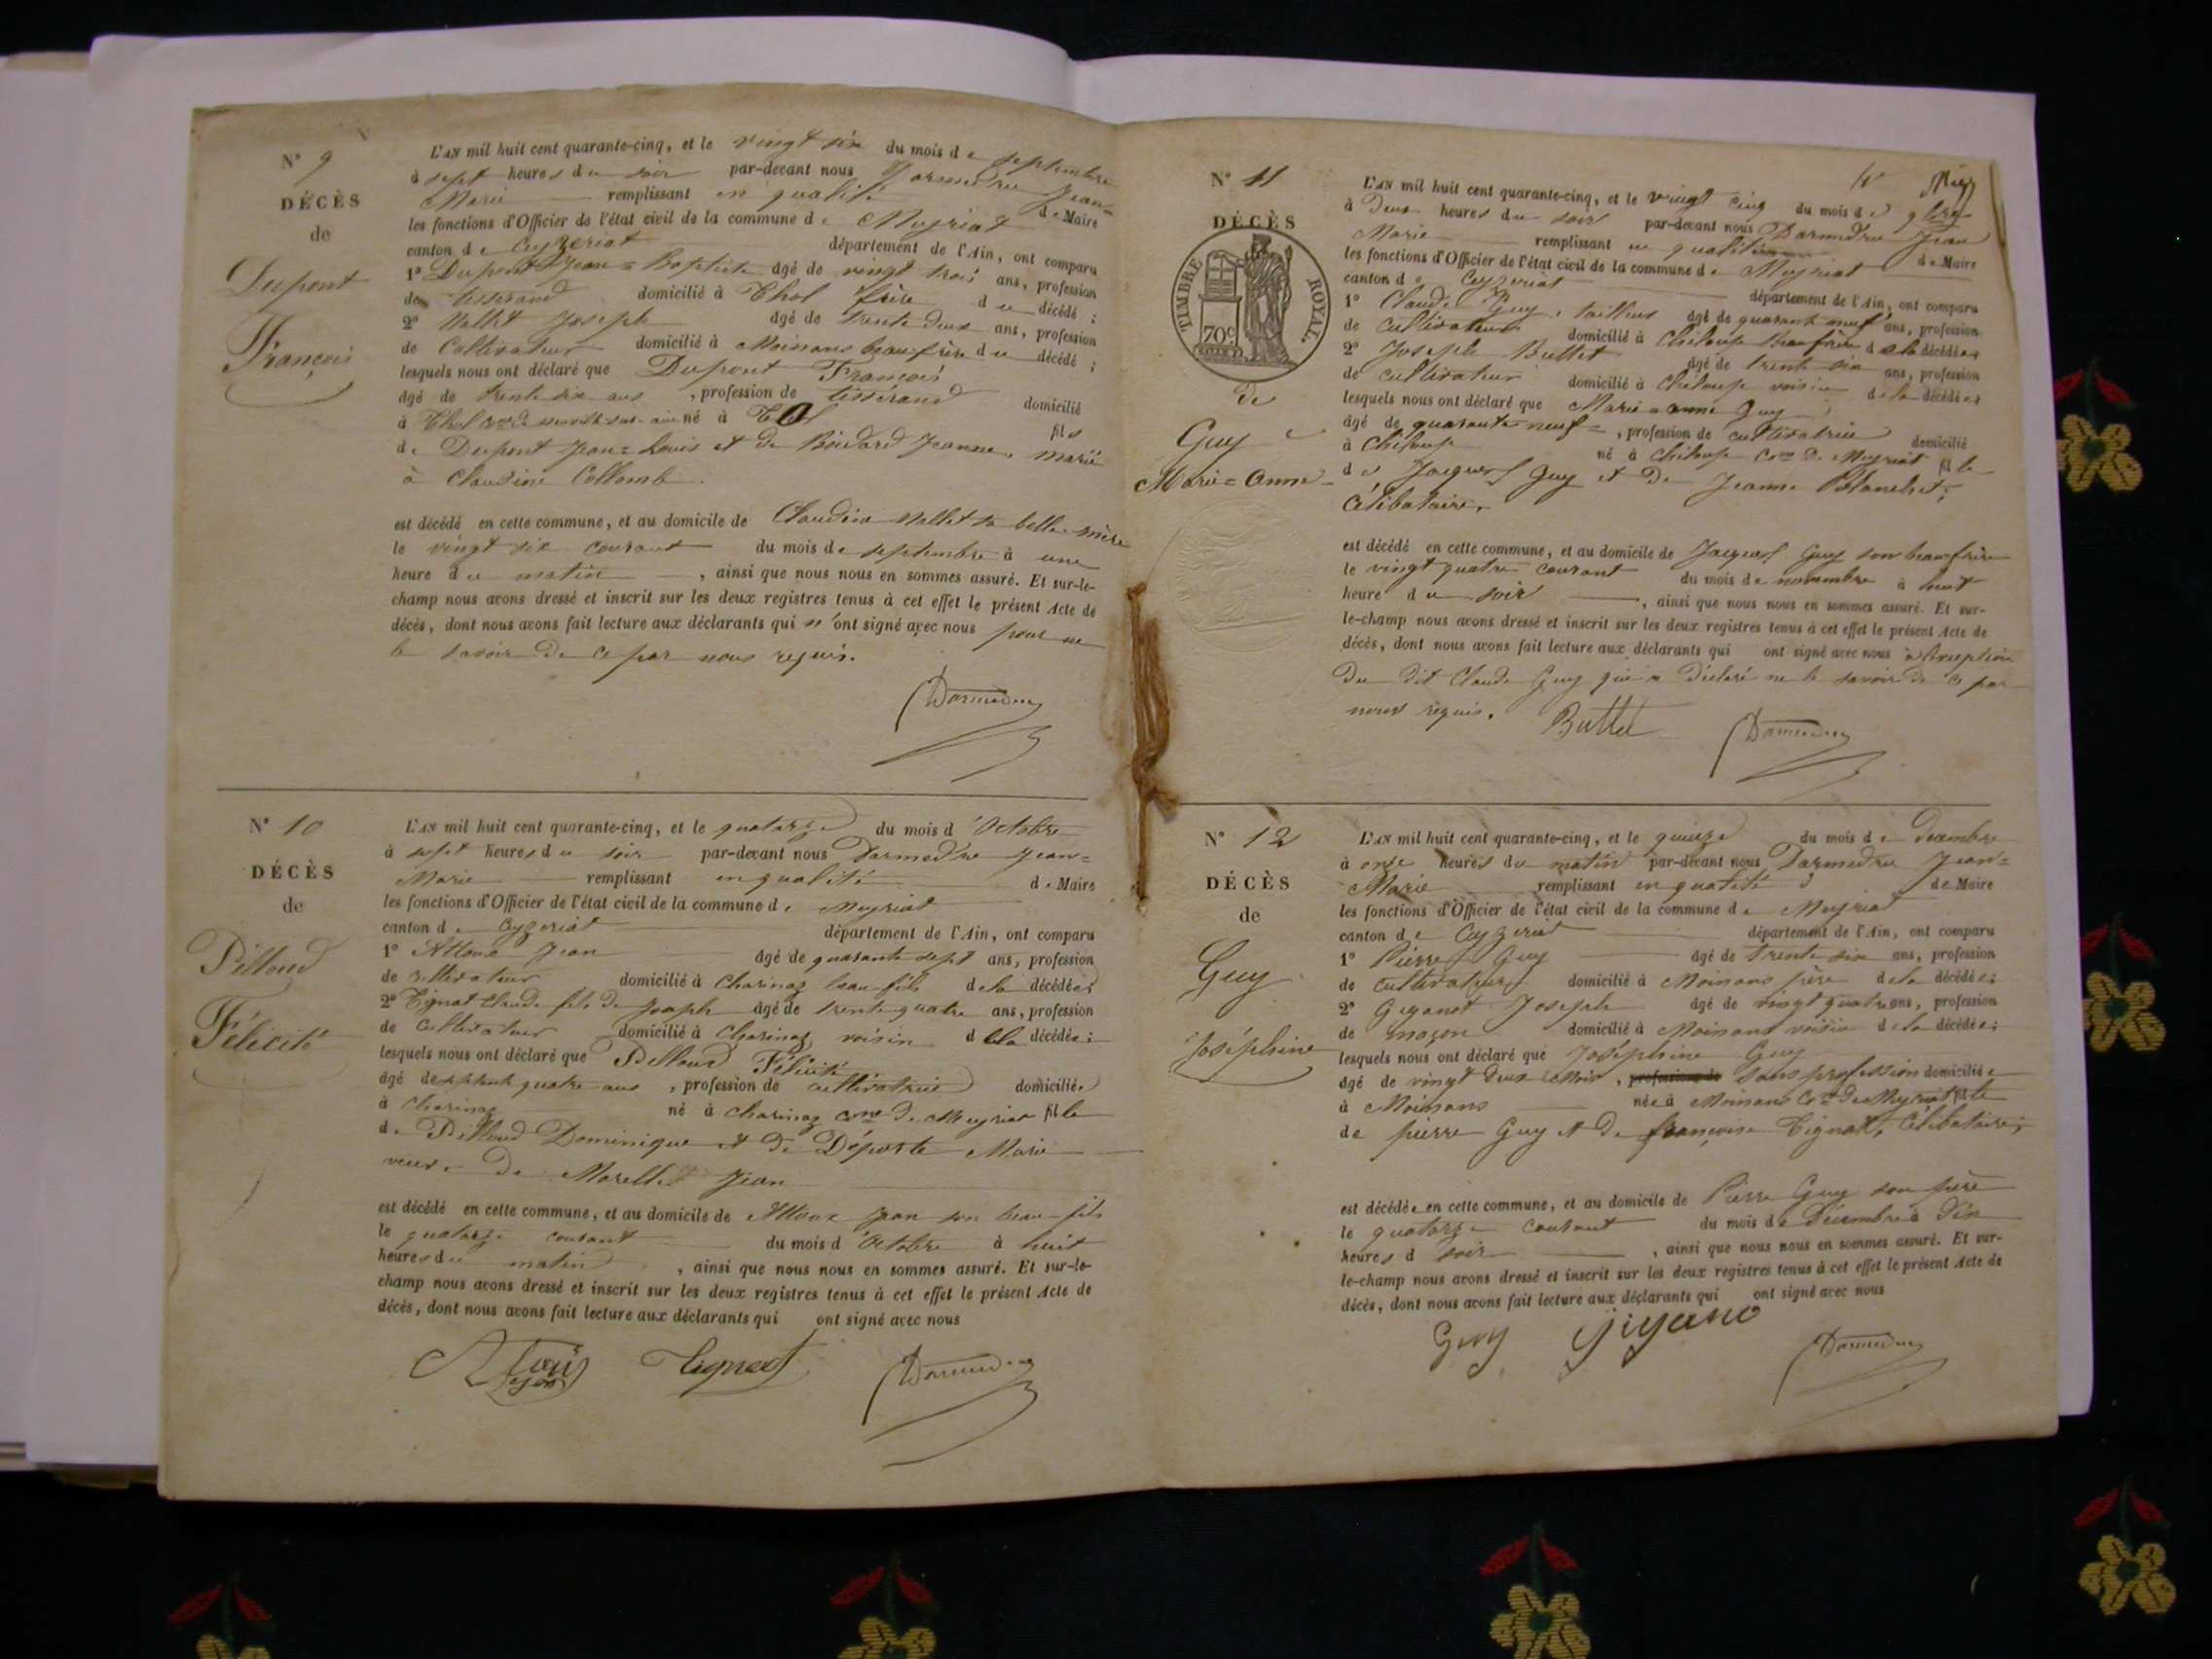 N° 9
DÉCÈS
de
Dupont
François
L'AN mil huit cent quarante-cinq, et le vingt six du mois de septembre
à sept heures du soir par-devant nous Darmedru Jean=
Marie remplissant en qualité de Maire
les fonctions d'Officier de l'état civil de la commune de Meyriat
canton de Ceyzeriat département de l'Ain, ont comparu
1° Dupont Jean=Baptiste âgé de vingt trois ans, profession
de tisserand domicilié à Thol frère du décédé ;
2° Mallet Joseph âgé de trente deux ans, profession
de Cultivateur domicilié à Moinans beau frère du décédé ;
lesquels nous ont déclaré que Dupont François
âgé de trente six ans, profession de tisserand domicilié
à Thol cne de neuville-sur-ain né à Thol fils
de Dupont Jean=Louis et de Boudard Jeanne, marié
à Claudine Collomb.
est décédé en cette commune, et au domicile de Claudine Mallet sa belle-mère
le vingt six courant du mois de septembre à une
heure du matin, ainsi que nous nous en sommes assuré. Et sur-le-
champ nous avons dressé et inscrit sur les deux registres tenus à cet effet le présent Acte de
décès, dont nous avons fait lecture aux déclarants qui n'ont signé avec nous pour ne
le savoir de ce par nous requis.
Darmedru
N° 10
DÉCÈS
de
Pilloud
Félicité
L'AN mil huit cent quarante-cinq, et le quatorze du mois d'Octobre
à sept heures du soir par-devant nous Darmedru Jean=
Marie remplissant en qualité de Maire
les fonctions d'Officier de l'état civil de la commune de Meyriat
canton de Ceyzeriat département de l'Ain, ont comparu
1° Alloux Jean âgé de quarante sept ans, profession
de cultivateur domicilié à Charinaz beau-fils de la décédée ;
2° Tignat Claude fils de Joseph âgé de trente quatre ans, profession
de Cultivateur domicilié à Charinaz voisin de la décédée ;
lesquels nous ont déclaré que Pilloud Félicité
âgé de septante quatre ans, profession de cultivatrice domiciliée
à Charinaz né à Charinaz cne de Meyriat fille
de Pilloud Dominique et de Déporte Marie
veuve de Morellet Jean
est décédé en cette commune, et au domicile de Alloux Jean son beau-fils
le quatorze courant du mois d'Octobre à huit
heures du matin, ainsi que nous nous en sommes assuré. Et sur-le-
champ nous avons dressé et inscrit sur les deux registres tenus à cet effet le présent Acte de
décès, dont nous avons fait lecture aux déclarants qui ont signé avec nous
Tignat Darmedru
N° 11
DÉCÈS
TIMBRE ROYAL.
70c
de
Guy
Marie=Anne
L'AN mil huit cent quarante-cinq, et le vingt cinq du mois de 9bre
à Deux heures du soir par-devant nous Darmedru Jean
Marie remplissant en qualité de Maire
les fonctions d'Officier de l'état civil de la commune de Meyriat
canton de Ceyzeriat département de l'Ain, ont comparu
1° Claude Guy, tailleur âgé de quarante neuf ans, profession
de cultivateur domicilié à Chiloup beau frère de la décédée
2° Joseph Buttet âgé de trente six ans, profession
de cultivateur domicilié à Chiloup voisin de la décédée
lesquels nous ont déclaré que Marie=anne Guy
âgé de quarante neuf, profession de cultivatrice domicilié
à Chiloup né à Chiloup cne de Meyriat fille
de Jacques Guy et de Jeanne Blanchet,
Célibataire,
est décédé en cette commune, et au domicile de Jacques Guy son beau-frère
le vingt quatre courant du mois de novembre à huit
heure du soir, ainsi que nous nous en sommes assuré. Et sur-
le-champ nous avons dressé et inscrit sur les deux registres tenus à cet effet le présent Acte de
décès, dont nous avons fait lecture aux déclarants qui ont signé avec nous à l'exception
du dit Claude Guy qui a déclaré ne le savoir de ce par
nous requis. Buttet Darmedru
N° 12
DÉCÈS
de
Guy
Joséphine
L'AN mil huit cent quarante-cinq, et le quinze du mois de decembre
à onze heures du matin par-devant nous Darmedru Jean=
Marie remplissant en qualité de Maire
les fonctions d'Officier de l'état civil de la commune de Meyriat
canton de Ceyzeriat département de l'Ain, ont comparu
1° Pierre Guy âgé de trente six ans, profession
de cultivateur domicilié à Moinans père de la décédée ;
2° Giganot Joseph âgé de vingt quatre ans, profession
de maçon domicilié à Moinans voisin de la décédée ;
lesquels nous ont déclaré que Joséphine Guy
âgé de vingt deux mois, profession de sans profession domiciliée
à Moinans née à Moinans Cne de Meyriat fille
de pierre Guy et de françoise Tignat, Célibataire,
est décédée en cette commune, et au domicile de Pierre Guy son père
le quatorze courant du mois de Décembre à dix
heures d soir, ainsi que nous nous en sommes assuré. Et sur-
le-champ nous avons dressé et inscrit sur les deux registres tenus à cet effet le présent Acte de
décès, dont nous avons fait lecture aux déclarants qui ont signé avec nous
Guy Gigano
Darmedru